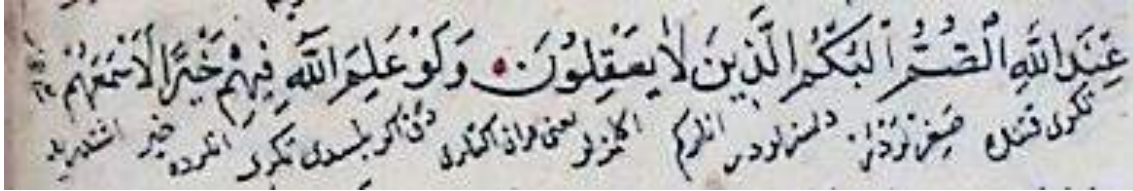 عِنْدَ اللّٰهِ الصُّمُّ الْبُكْمُ الَّذِينَ لَا يَعْقِلُونَ وَلَوْ عَلِمَ اللّٰهُ فِيهِمْ خَيْرًا لَاَسْمَعَهُمْ
تكرى قتنده صغرلردر دلسزلردر انلركم اكلمزلر يعنى قران دخى اكر بلسيدى تكرى انلرده خير